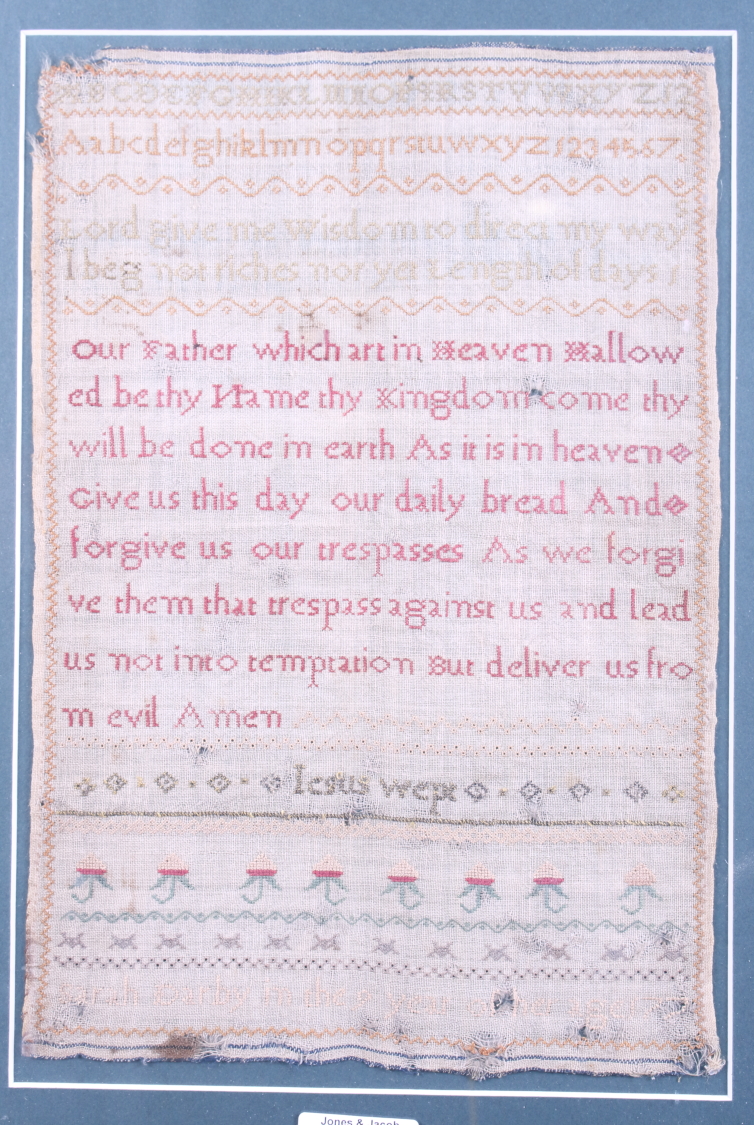 A B C D E F G H I K L M N O P Q R S T V W X Y Z 12
Aabcdefghiklmnopqrstuwxyz 1234567
Lord give me Wisdom to direct my ways
I beg not riches nor yet Length of days
Our Father which art in Heaven Hallow
ed be thy Name thy Kingdom come thy
will be done in earth As it is in heaven
Give us this day our daily bread And
forgive us our trespasses As we forgi
ve them that trespass against us and lead
us not into temptation But deliver us fro
m evil Amen
Iesus wept
in the
Jones & Jacob